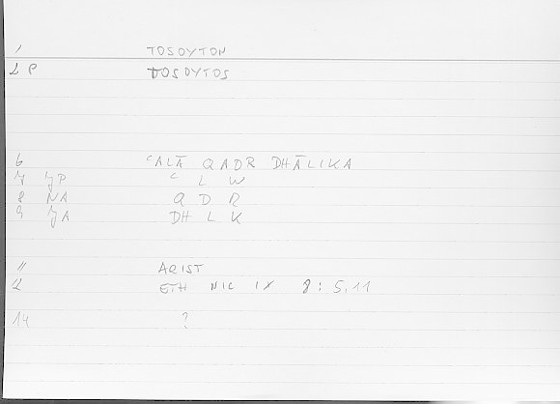 1 TOSOYTON
2 P TOSOYTOS
6 ʿALĀ QADR DHĀLIKA
7 JP ʿ L W
8 NA Q D R
9 JA DH L K
11 ARIST
12 ETH NIC IX 8 : 5.11
14 ?